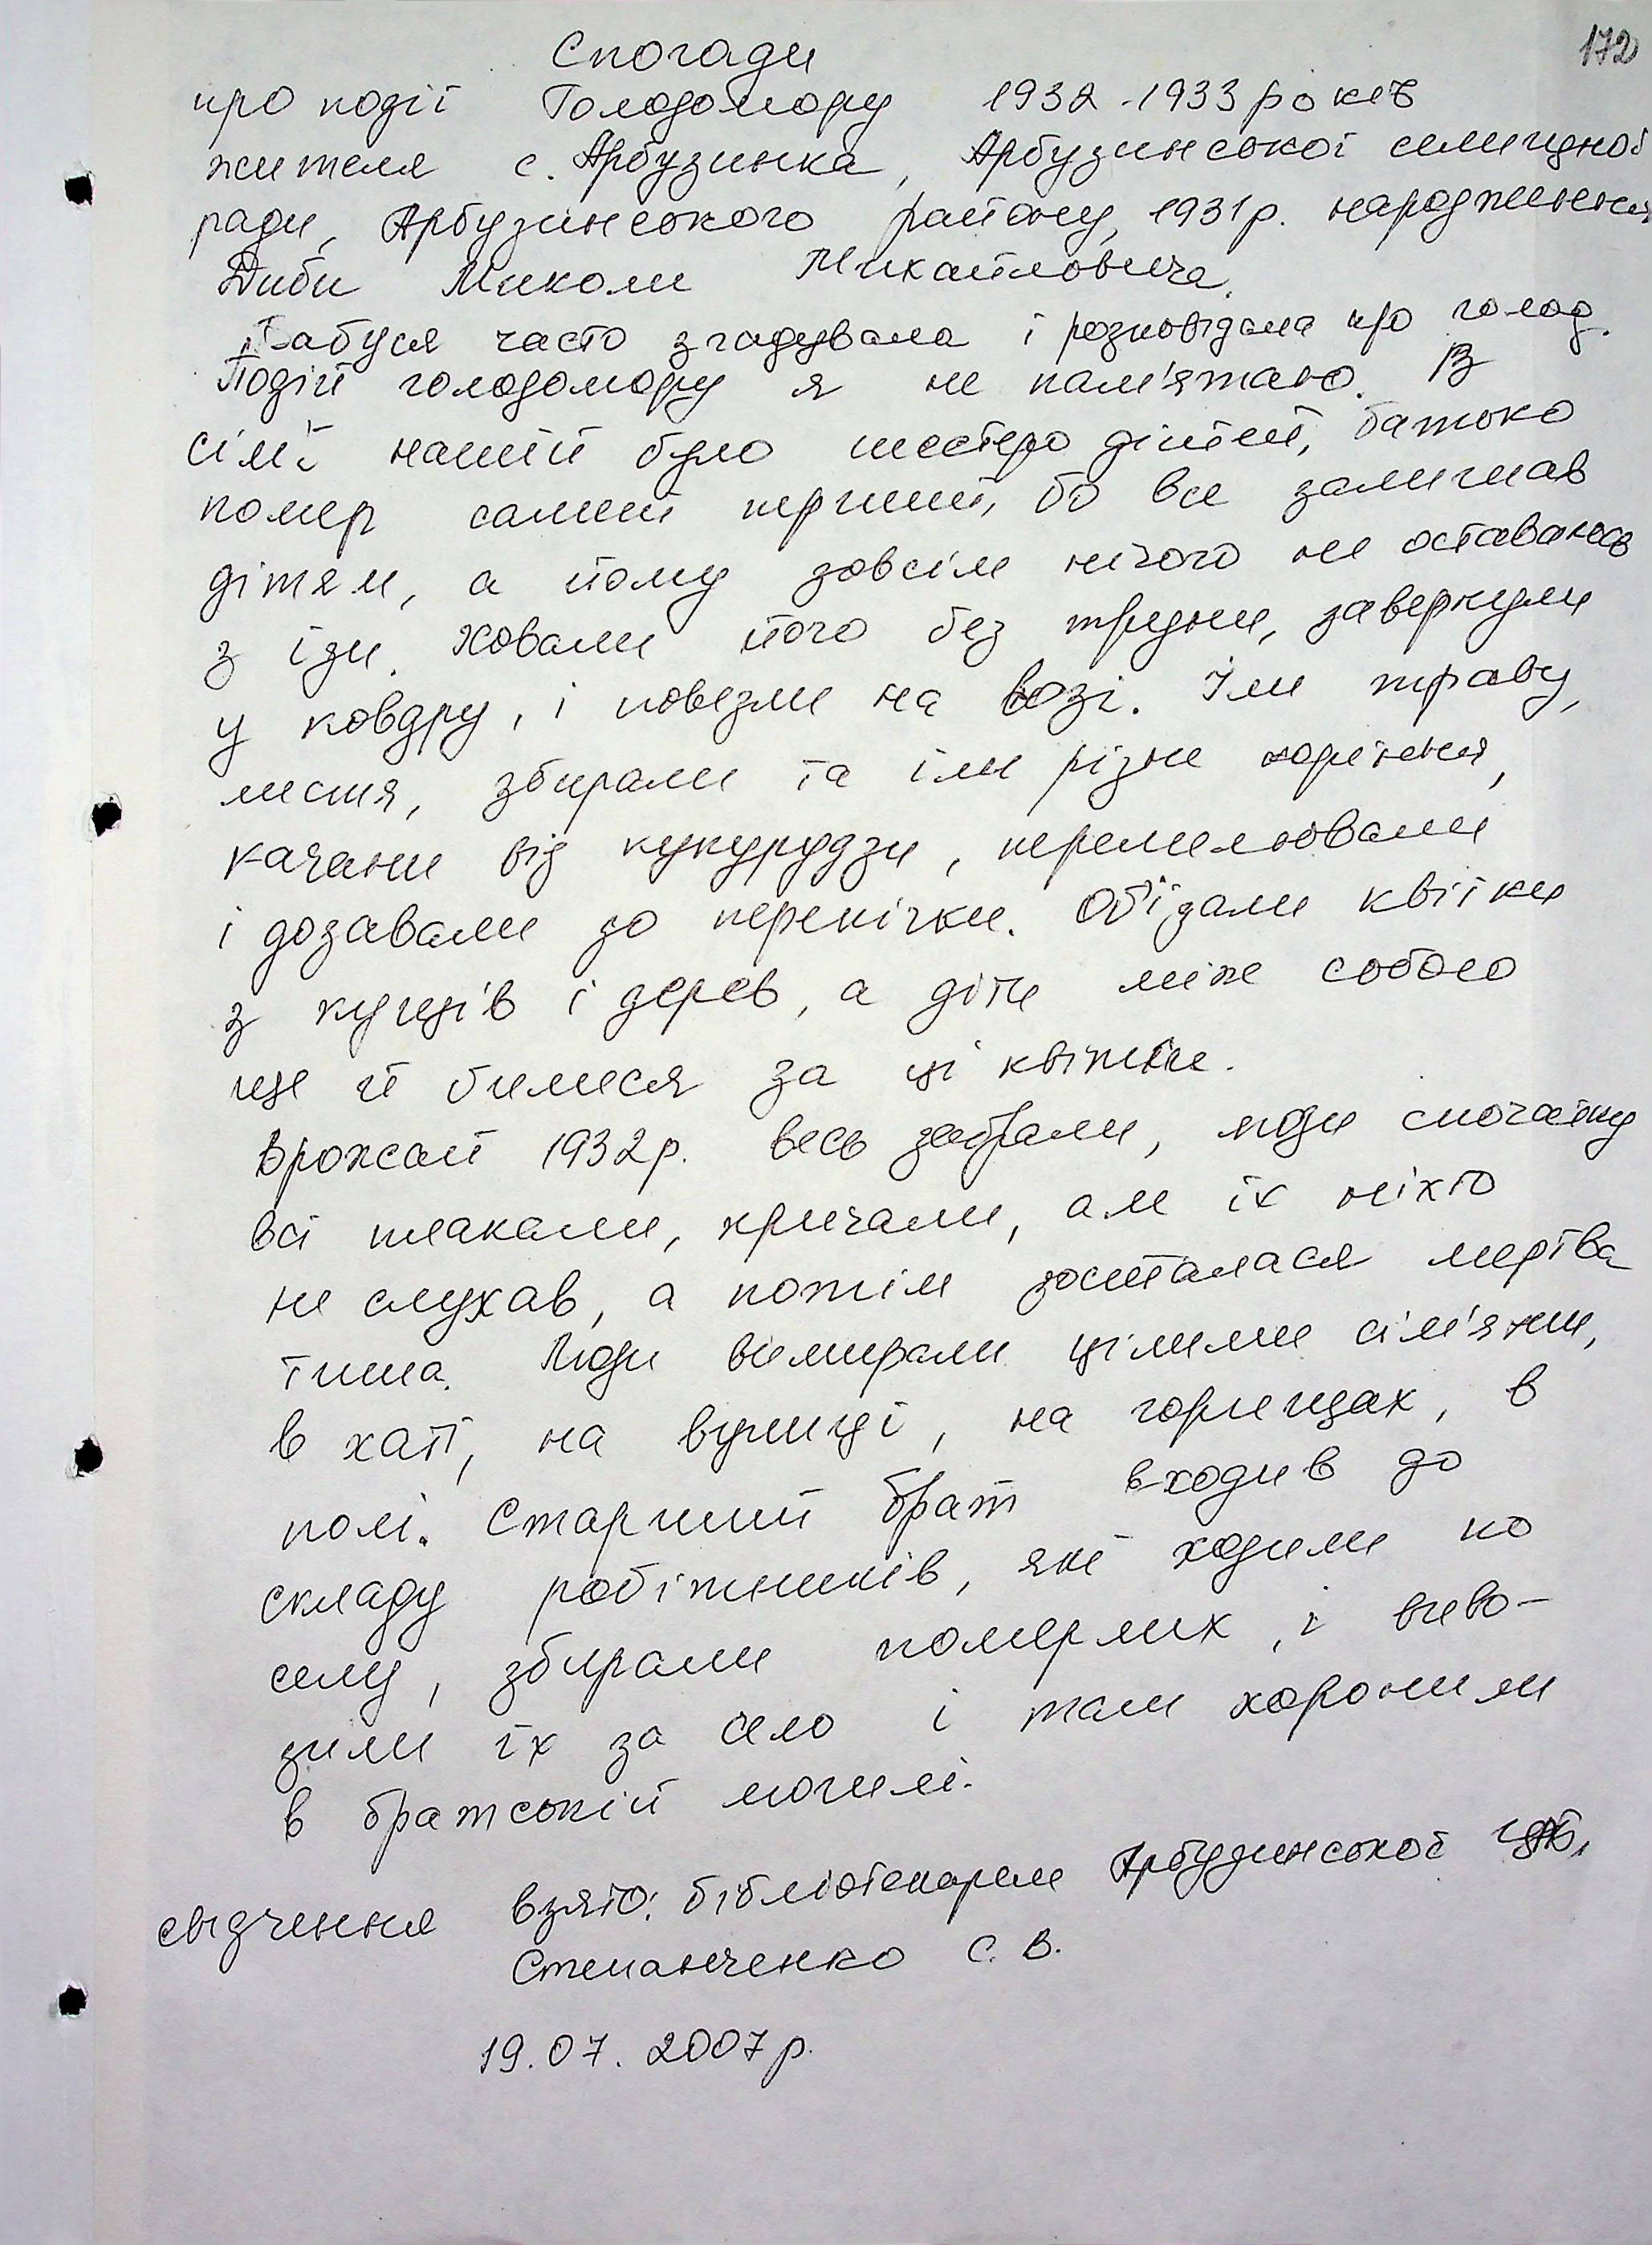 172
Спогади
про події Голодомору 1932-1933 років
жителя с. Арбузинка, Арбузинської селищної
ради, Арбузинського району, 1931р. народження
Диби Миколи Михайловича.
Бабуся часто згадувала і розповідала про голод.
Подій голодомору я не пам'ятаю. В
сім'ї нашій було шестеро дітей, батько
помер самий перший, бо все залишав
дітям, а йому зовсім нічого не оставалось
з їзи. Ховали його без труни, завернули
у ковдру, і повезли на возі. Їли траву,
листя, збирали та їли різне коріння,
качани від кукурудзи, перемелювали
і дозавали до перепічки. Об'їдали квітки
з кущів і дерев, а діти між собою
ще й билися за ці квітки.
Врожай 1932р. весь забрали, люди спочатку
всі плакали, кричали, але їх ніхто
не слухав, а потім зосталася мертва
тиша. Люди вимирали цілими сім'ями,
в хаті, на вулиці, на горищах, в
полі. Старший брат входив до
складу робітників, які ходили по
селу, збирали померлих, і виво-
зили їх за село і там хоронили
в братській могилі.
свідчення взято: бібліотекарем Арбузинської ЦРБ,
Степанченко С. В.
19.07.2007р.